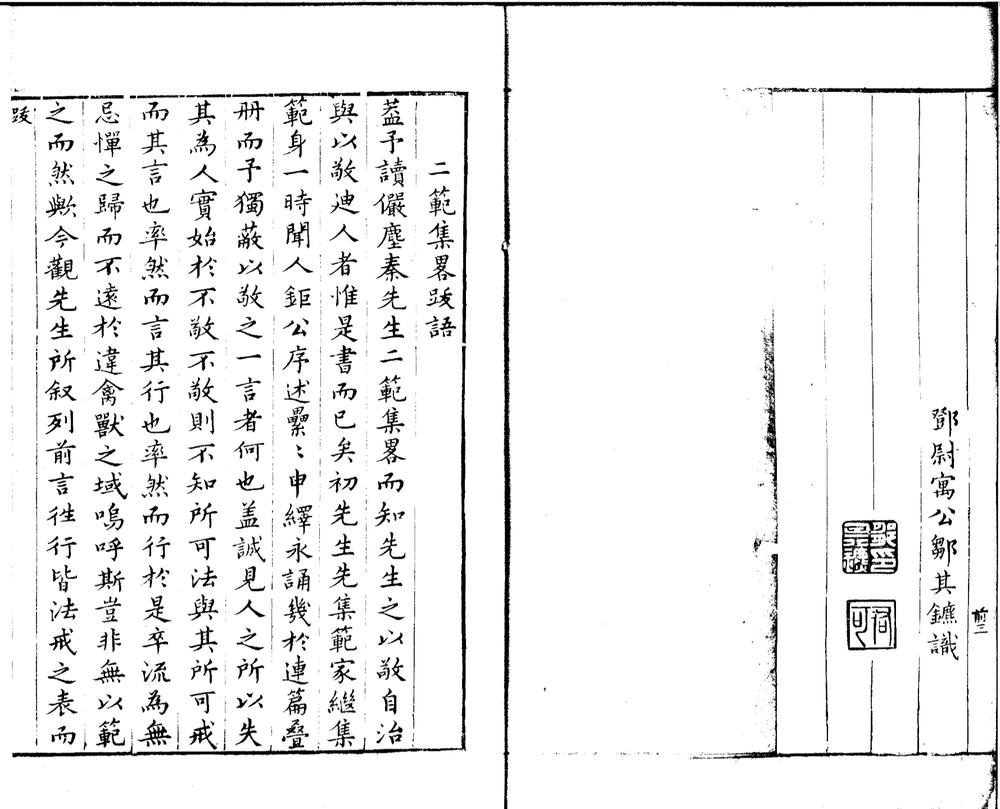 鄧尉寓公鄒其鑣識
前三
二範集畧跋語
葢予讀儼塵秦先生二範集畧而知先生之以敬自治
與以敬迪人者惟是書而已矣初先生先集範家繼集
範身一時聞人鉅公序述纍〻申繹永誦幾於連篇疊
冊而予獨蔽以敬之一言者何也盖誠見人之所以失
其為人實始於不敬不敬則不知所可法與其所可戒
而其言也率然而言其行也率然而行於是卒流為無
忌憚之歸而不遠於違禽獸之域嗚呼斯豈非無以範
之而然歟今觀先生所叙列前言徃行皆法戒之表而
跋